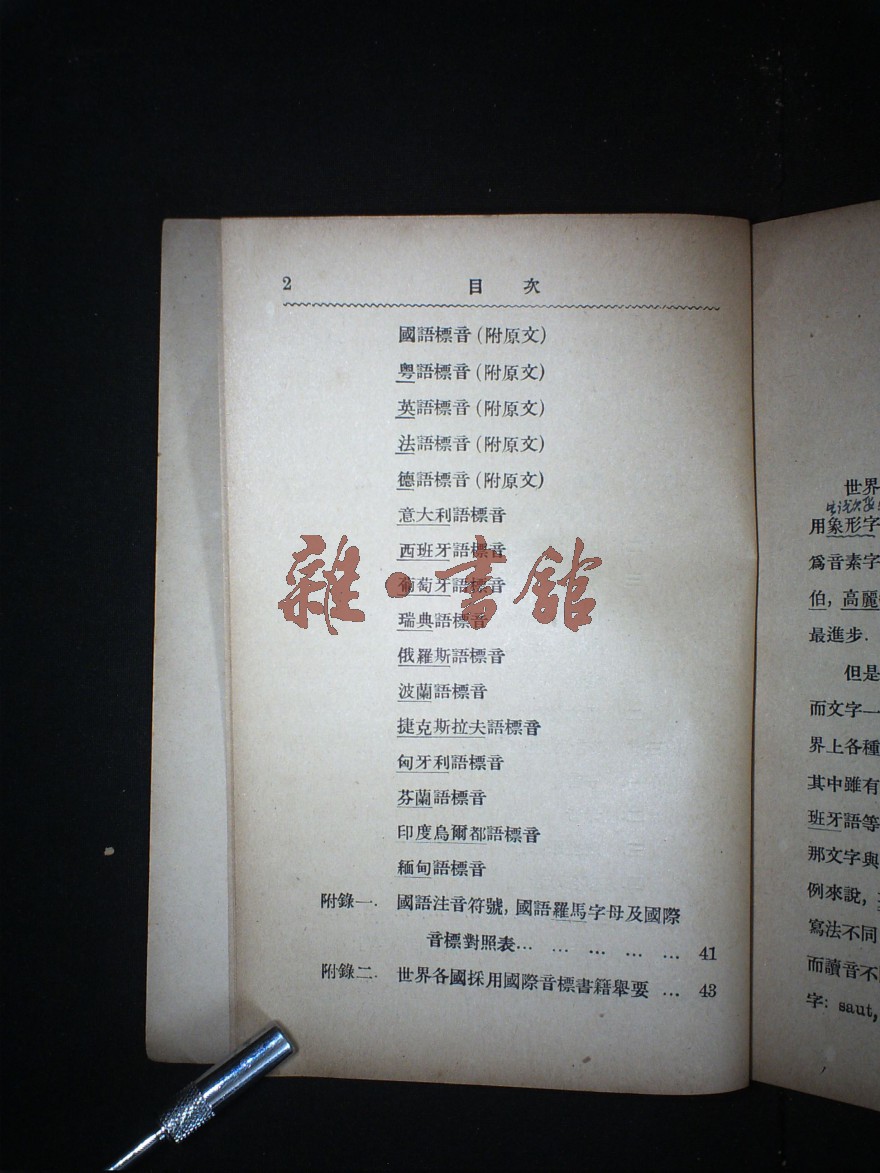 2
目 次
國語標音(附原文)
粵語標音(附原文)
英語標音(附原文)
法語標音(附原文)
德語標音(附原文)
意大利語標音
西班牙語標音
葡萄牙語標音
瑞典語標音
俄羅斯語標音
波蘭語標音
捷克斯拉夫語標音
匈牙利語標音
芬蘭語標音
印度烏爾都語標音
緬甸語標音
附錄一. 國語注音符號, 國語羅馬字母及國際
音標對照表... ... ... ... ... 41
附錄二. 世界各國採用國際音標書籍舉要 ... 43
雜·書館
世界
用象形字
為音素字
伯, 高麗
最進步.
但是
而文字一
界上各種
其中雖有
班牙語等
那文字與
例來說,
寫法不同
而讀音不
字: saut,